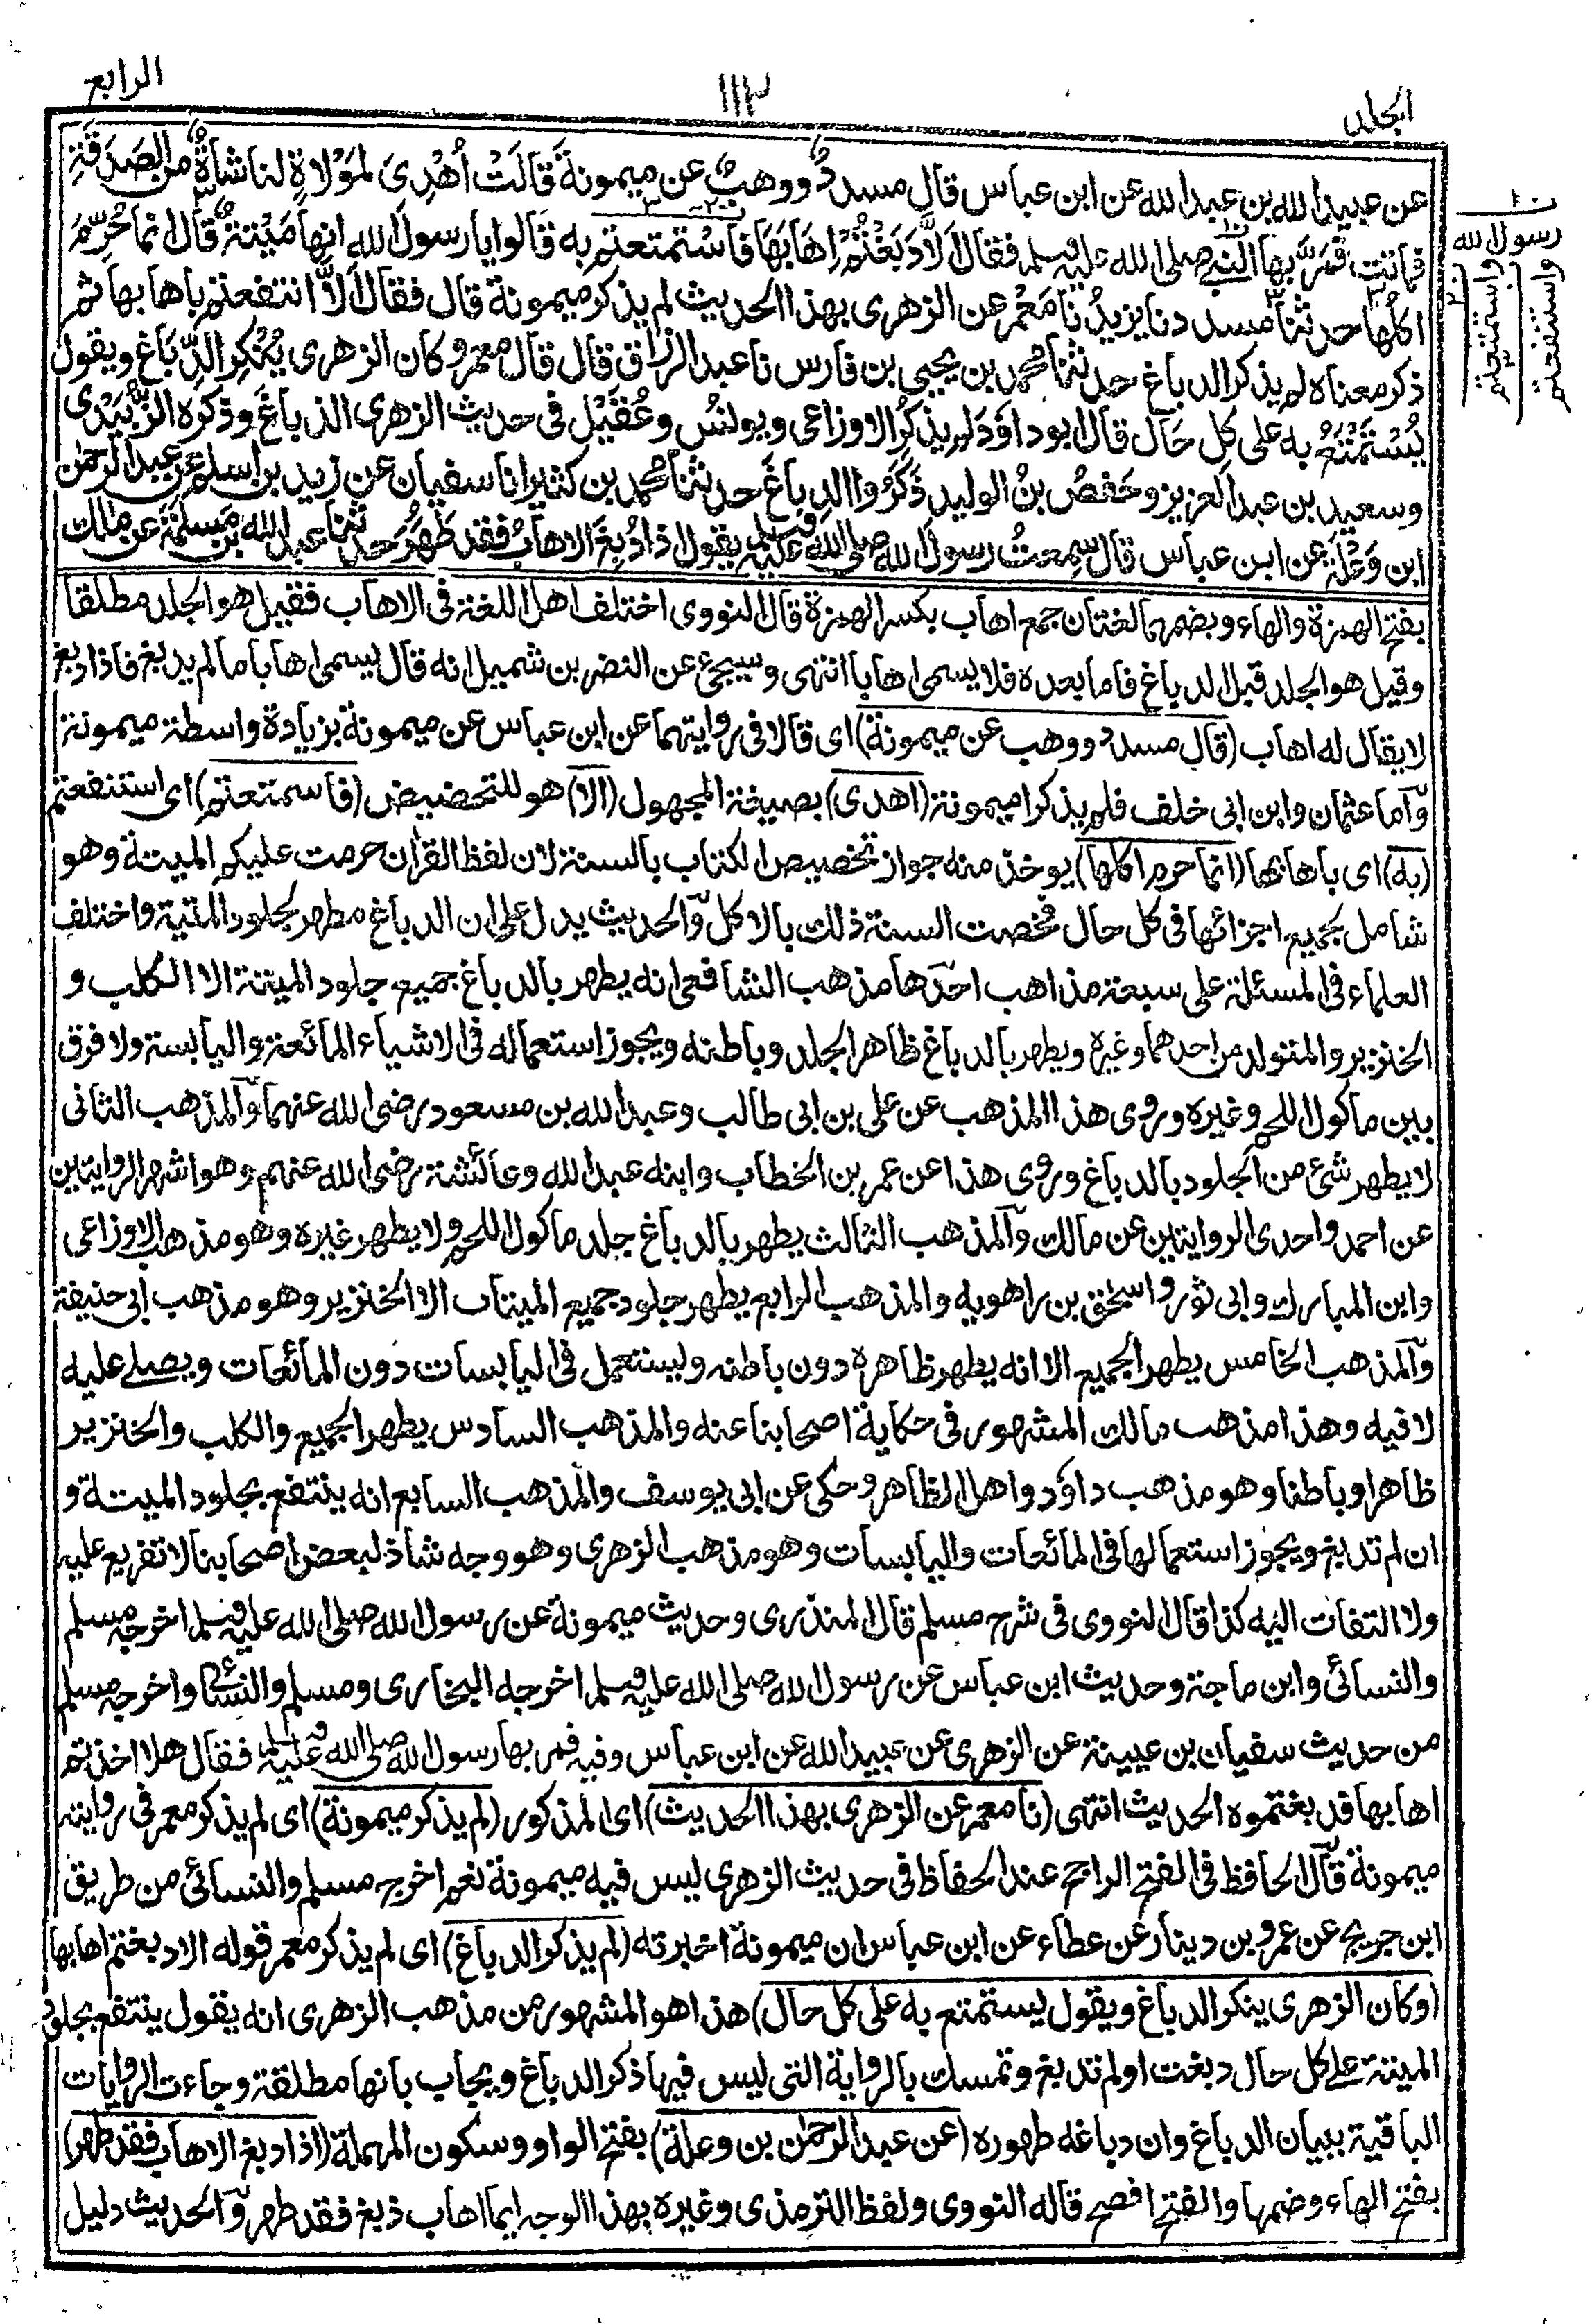 الجلد
١١٣
الرابع
عن عبيد الله بن عبد الله عن ابن عباس قال مسددٌ ووهبٌ عن ميمونةَ قَالَتْ أُهْدِىَ لمَوْلاةٍ لنا شاةٌ من الصَدَقَةِ
فماتت فَمَرَّ بها النبى صلى الله عليه وسلم فقال اَلاَّ دَبَغْتُمْ اِهَابَهَا فَاسْتَمْتعتم به قالوا يا رسول الله انها مَيْتةٌ قال انما حُرِّمَ
اكلُها حدثنا مسدد نا يزيدُ نا مَعْمر عن الزهرى بهذا الحديث لم يذكر ميمونة قال فقال اَلاَّ انتفعتم باهابها ثم
ذكر معناه لم يذكر الدباغ حدثنا محمد بن يحيى بن فارس نا عبد الرزاق قال قال معمر وكان الزهرى يُنْكِر الدِّبَاغ ويقول
يُسْتَمْتَعُ به على كل حَال قال ابو داؤد لم يذكُرِ الاوزاعى ويونسُ وعُقَيْل فى حديث الزهرى الدباغَ وذكره الزُبَيْدى
وسعيد بن عبد العزيز وحَفصُ بنُ الوليد ذَكَرُوا الدباغَ حدثنا محمد بن كثير انا سفيان عن زيد بن اسلم عن عبد الرحمن
ابن وَعْلة عن ابن عباس قال سمعتُ رسول الله صلى الله عليه وسلم يقول اذا دُبِغَ الاهابُ فقد طَهُرَ حدثنا عبد الله بن مَسلمَةَ عن مالك
بفتح الهمزة والهاء وبضمهما لغتان جمع اهاب بكسر الهمزة قال النووى اختلف اهل اللغة فى الاهاب فقيل هو الجلد مطلقا
وقيل هو الجلد قبل الدباغ فاما بعده فلا يسمى اهابا انتهى وسيجئ عن النضر بن شميل انه قال يسمى اهابا مالم يدبغ فاذا دبغ
لا يقال له اهاب (قال مسدد ووهب عن ميمونة) اى قالا فى روايتهما عن ابن عباس عن ميمونة بزيادة واسطة ميمونة
وآما عثمان وابن ابى خلف فلم يذكرا ميمونة (اهدى) بصيغة المجهول (الا) هو للتحضيض (فاسمتعتم) اى استنفعتم
(به) اى باهابها (انما حرم اكلها) يوخذ منه جواز تخصيص الكتاب بالسنة لان لفظ القرآن حرمت عليكم الميتة وهو
شامل بجميع اجزائها فى كل حال فخصت السنة ذلك بالاكل وآلحديث يدل على ان الدباغ مطهر لجلود الميتة واختلف
العلماء فى المسئلة على سبعة مذاهب احدها مذهب الشافعى انه يطهر بالدباغ جميع جلود الميتة الا الكلب و
الخنزير والمتولد من احدهما وغيره ويطهر بالدباغ ظاهر الجلد وباطنه ويجوز استعماله فى الاشياء المائعة واليابسة ولا فرق
بين ماكول اللحم وغيره وروى هذا المذهب عن على بن ابى طالب وعبد الله بن مسعود رضى الله عنهما وآلمذهب الثانى
لا يطهر شئ من الجلود بالدباغ وروى هذا عن عمر بن الخطاب وابنه عبد الله وعائشة رضى الله عنهم وهو اشهر الروايتين
عن احمد واحدى الروايتين عن مالك وآلمذهب الثالث يطهر بالدباغ جلد ماكول اللحم ولا يطهر غيره وهو مذهب الاوزاعى
وابن المبارك وابى ثور واسحق بن راهويه والمذهب الرابع يطهر جلود جميع الميتات الا الخنزير وهو مذهب ابى حنيفة
وآلمذهب الخامس يطهر الجميع الا انه يطهر ظاهره دون باطنه ويستعمل فى اليابسات دون المائعات ويصلى عليه
لا فيه وهذا مذهب مالك المشهور فى حكاية اصحابنا عنه والمذهب السادس يطهر الجميع والكلب والخنزير
ظاهرا وباطنا وهو مذهب داؤد واهل الظاهر وحكى عن ابى يوسف والمذهب السابع انه ينتفع بجلود الميتة و
ان لم تدبغ ويجوز استعمالها فى المائعات واليابسات وهو مذهب الزهرى وهو وجه شاذ لبعض اصحابنا لا تفريع عليه
ولا التفات اليه كذا قال النووى فى شرح مسلم قال المنذرى وحديث ميمونة عن رسول الله صلى الله عليه وسلم اخرجه مسلم
والنسائى وابن ماجة وحديث ابن عباس عن رسول الله صلى الله عليه وسلم اخرجه البخارى ومسلم والنسائى واخرجه مسلم
من حديث سفيان بن عيينة عن الزهرى عن عبيد الله عن ابن عباس وفيه فمر بها رسول الله صلى الله عليه وسلم فقال هلا اخذتم
اهابها فدبغتموه الحديث انتهى (نا معمر عن الزهرى بهذا الحديث) اى المذكور (لم يذكر ميمونة) اى لم يذكر معمر فى روايته
ميمونة قآل الحافظ فى الفتح الراجح عند الحفاظ فى حديث الزهرى ليس فيه ميمونة نعم اخرجه مسلم والنسائى من طريق
ابن جريج عن عمرو بن دينار عن عطاء عن ابن عباس ان ميمونة اخبرته (لم يذكر الدباغ) اى لم يذكر معمر قوله الا دبغتم اهابها
(وكان الزهرى ينكر الدباغ ويقول يستمتع به على كل حال) هذا هو المشهور من مذهب الزهرى انه يقول ينتفع بجلود
الميتة على كل حال دبغت او لم تدبغ وتمسك بالرواية التى ليس فيها ذكر الدباغ ويجاب بانها مطلقة وجاءت الروايات
الباقية ببيان الدباغ وان دباغه طهوره (عن عبد الرحمن بن وعلة) بفتح الواو وسكون المهملة (اذا دبغ الاهاب فقد طهر)
بفتح الهاء وضمها والفتح افصح قاله النووى ولفظ الترمذى وغيره بهذا الوجه ايما اهاب دبغ فقد طهر وآلحديث دليل
رسول الله
واستمتعتم
واستنفعتم